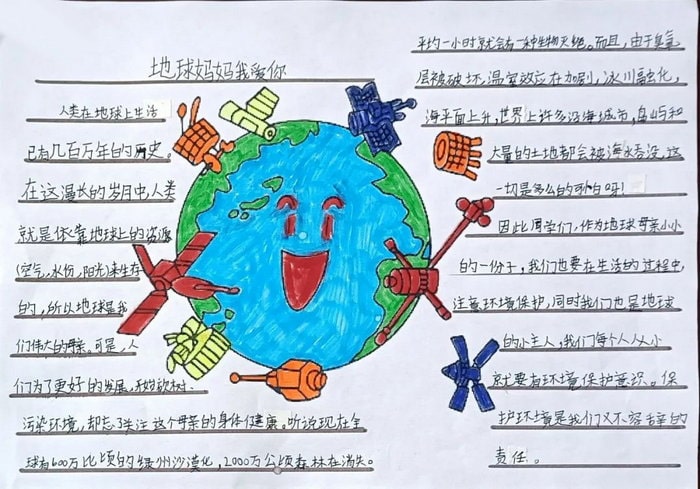 地球妈妈我爱你
人类在地球上生活
已有几百万年的历史。
在这漫长的岁月中,人类
就是依靠地球上的资源
(空气,水份,阳光)来生存
的,所以地球是我
们伟大的母亲。可是,人
们为了更好的发展,开始砍树.
污染环境,却忘了关注这个母亲的身体健康。听说现在全
球有600万比顷的绿州沙漠化,2000万公顷森林在消失。
平均一小时就会有一种生物灭绝。而且,由于臭氧
层被破坏,温室效应在加剧,冰川融化,
海平面上升,世界上许多沿海城市,岛屿和
大量的土地都会被海水吞没,这
一切是多么的可怕呀!
因此同学们,作为地球母亲小小
的一份子,我们也要在生活的过程中,
注意环境保护,同时我们也是地球
的小主人,我们每个人从小
就要有环境保护意识。保
护环境是我们义不容辞的
责任.。